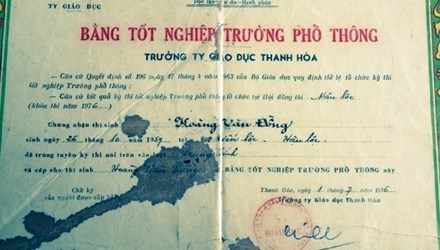 TY GIÁO DỤC
BẰNG TỐT NGHIỆP TRƯỜNG PHỔ THÔNG
TRƯỞNG TY GIÁO DỤC THANH HÓA
— Căn cứ Quyết định số 196 ngày 17 tháng 4 năm 1963 của Bộ Giáo dục quy định thể lệ tổ chức kỳ thi
tốt nghiệp Trường phổ thông;
— Căn cứ kết quả kỳ thi tốt nghiệp Trường phổ thông tổ chức tại Hội đồng thi Hậu Lộc
(khóa thi năm 1976)
Chứng nhận thí sinh Hoàng Văn Đồng
sinh ngày 26 tháng 10 năm 1959 Hậu Lộc
đã trúng tuyển kỳ thi nói trên
và cấp cho thí sinh Hoàng Văn BẰNG TỐT NGHIỆP TRƯỜNG PHỔ THÔNG này
Chữ ký Thanh Hóa, ngày 1 tháng 7 năm 1976
của người được cấp Trưởng ty Giáo dục Thanh Hóa